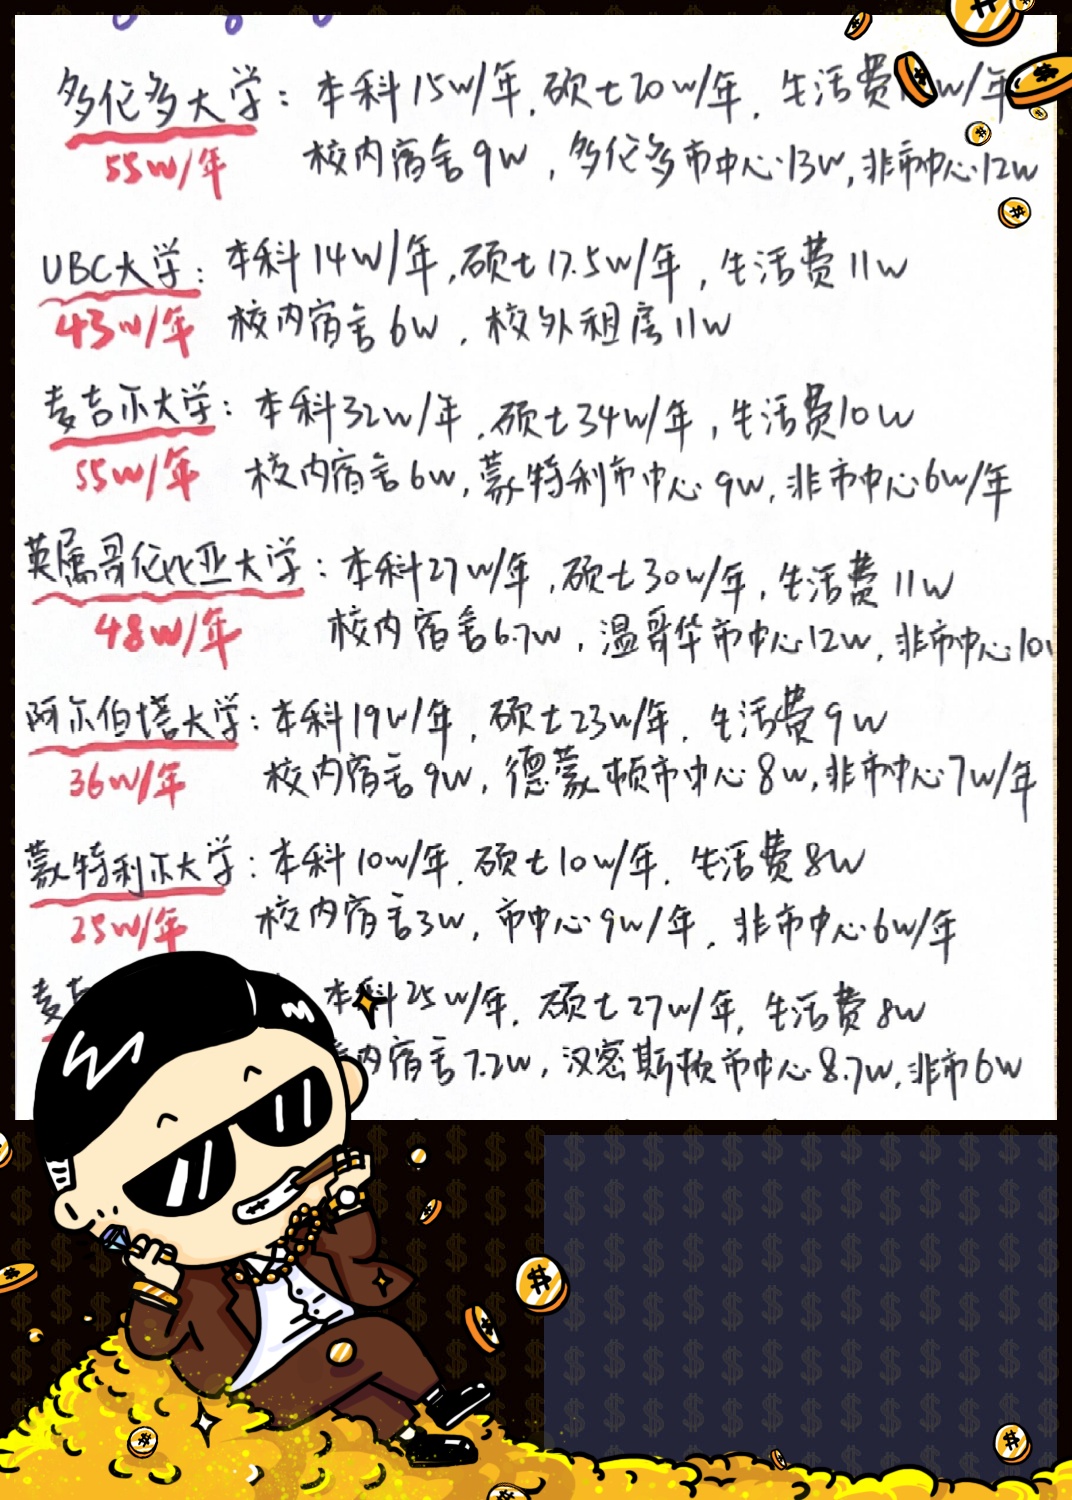 多伦多大学：本科15w/年，硕士20w/年，生活费 w/年
55w/年 校内宿舍9w，多伦多市中心13w，非市中心12w
UBC大学：本科14w/年，硕士17.5w/年，生活费11w
43w/年 校内宿舍6w，校外租房11w
麦吉尔大学：本科32w/年，硕士34w/年，生活费10w
55w/年 校内宿舍6w，蒙特利市中心9w，非市中心6w/年
英属哥伦比亚大学：本科27w/年，硕士30w/年，生活费11w
48w/年 校内宿舍6.7w，温哥华市中心12w，非市中心10
阿尔伯塔大学：本科19w/年，硕士23w/年，生活费9w
36w/年 校内宿舍9w，德蒙顿市中心8w，非市中心7w/年
蒙特利尔大学：本科10w/年，硕士10w/年，生活费8w
25w/年 校内宿舍3w，市中心9w/年，非市中心6w/年
麦 本科25w/年，硕士27w/年，生活费8w
内宿舍7.2w，汉密斯顿市中心8.7w，非市6w